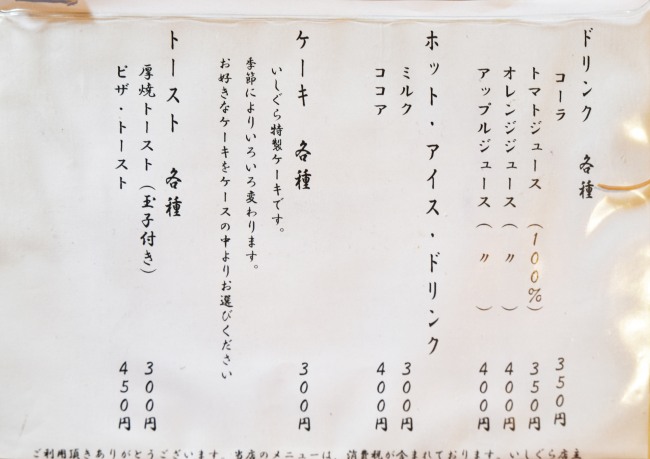 ドリンク 各種
コーラ 350円
トマトジュース(100%) 350円
オレンジジュース( 〃 ) 400円
アップルジュース( 〃 ) 400円
ホット・アイス・ドリンク
ミルク 300円
ココア 400円
ケーキ 各種 300円
いしぐら特製ケーキです。
季節によりいろいろ変わります。
お好きなケーキをケースの中よりお選びください
トースト 各種
厚焼トースト(玉子付き) 300円
ピザ・トースト 450円
ご利用頂きありがとうございます。当店のメニューは、消費税が含まれております。いしぐら店主